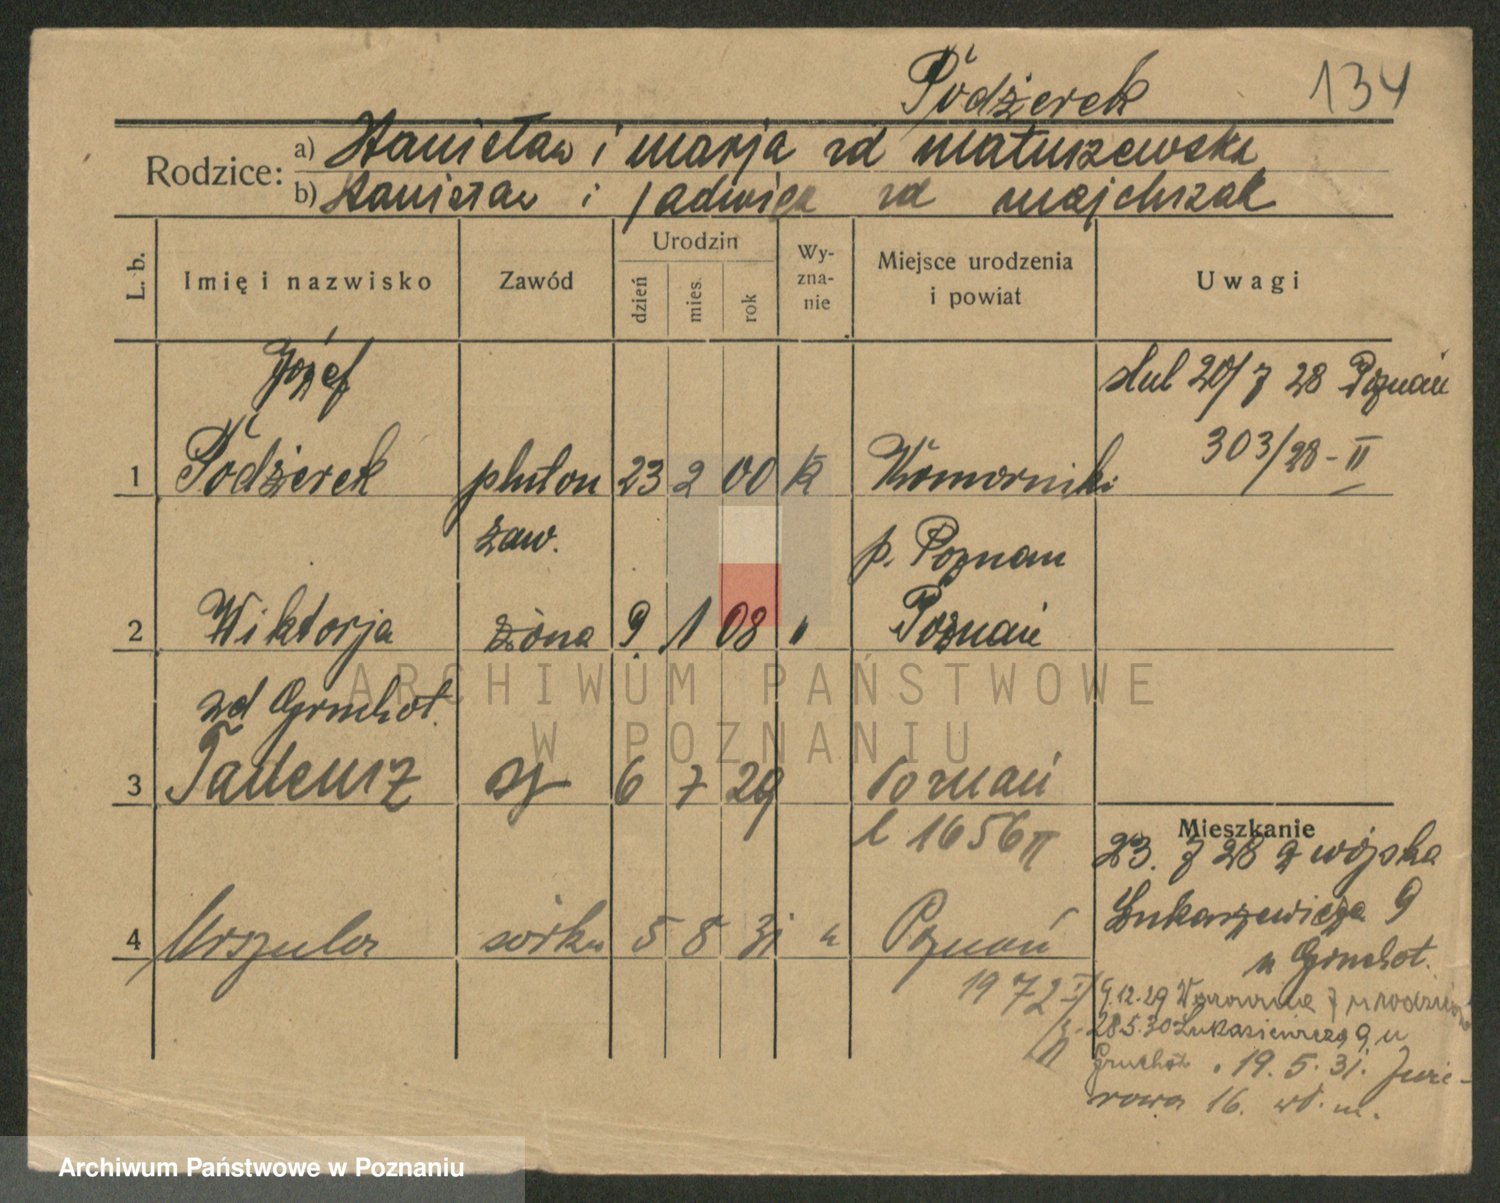 Pódżerek 134
Rodzice: a) Stanisław i Marja zd Matuszewska
b) Stanisław i Jadwiga zd Majchrzak
L. b. Imię i nazwisko Zawód Urodzin dzień mies. rok Wy-zna-nie Miejsce urodzenia i powiat Uwagi
Józef ślub 20/7 28 Poznań
303/28-II
1 Pódżerek pluton 23 2 00 k Komorniki
zaw. p. Poznań
2 Wiktorja żona 9 1 08 " Poznań
zd Gruchot.
3 Tadeusz 6 7 29 Poznań
l 1656 II
Mieszkanie
23. 7 28 z wojska
Łukaszewicza 9
4 Urszula córka 5 8 31 " Poznań
u Gruchot.
1972 II 9.12.29
28.5.30 Łukaszewicza 9 u
Gruchot . 19.5.31.
16. wł. m.
ARCHIWUM PAŃSTWOWE
W POZNANIU
Archiwum Państwowe w Poznaniu